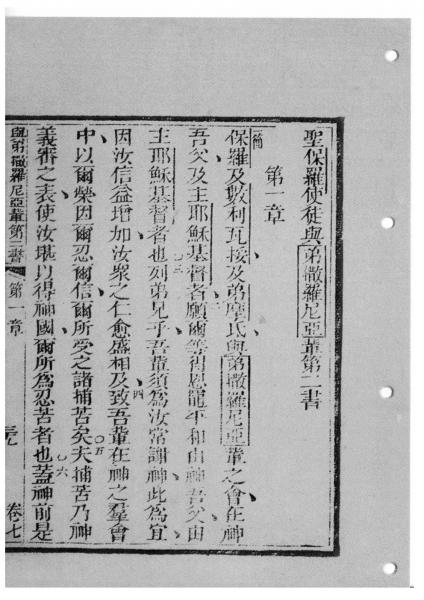 聖保羅使徒與弟撒羅尼亞輩第二書
第一章
一節保羅及數利瓦挼及弟摩氏與弟撒羅尼亞輩之會在神
吾父及主耶穌基督者二願爾等得恩寵平和由神吾父由
主耶穌基督者也三列弟兄乎吾輩須為汝常謝神此為宜
因汝信益增加汝衆之仁愈盛相及四致吾輩在神之羣會
中以爾榮因爾忍爾信爾所受之諸捕苦矣五夫捕苦乃神
義審之表使汝堪以得神國爾所為忍苦者也六蓋神前是
與弟撒羅尼亞輩第二書 第一章 卷七